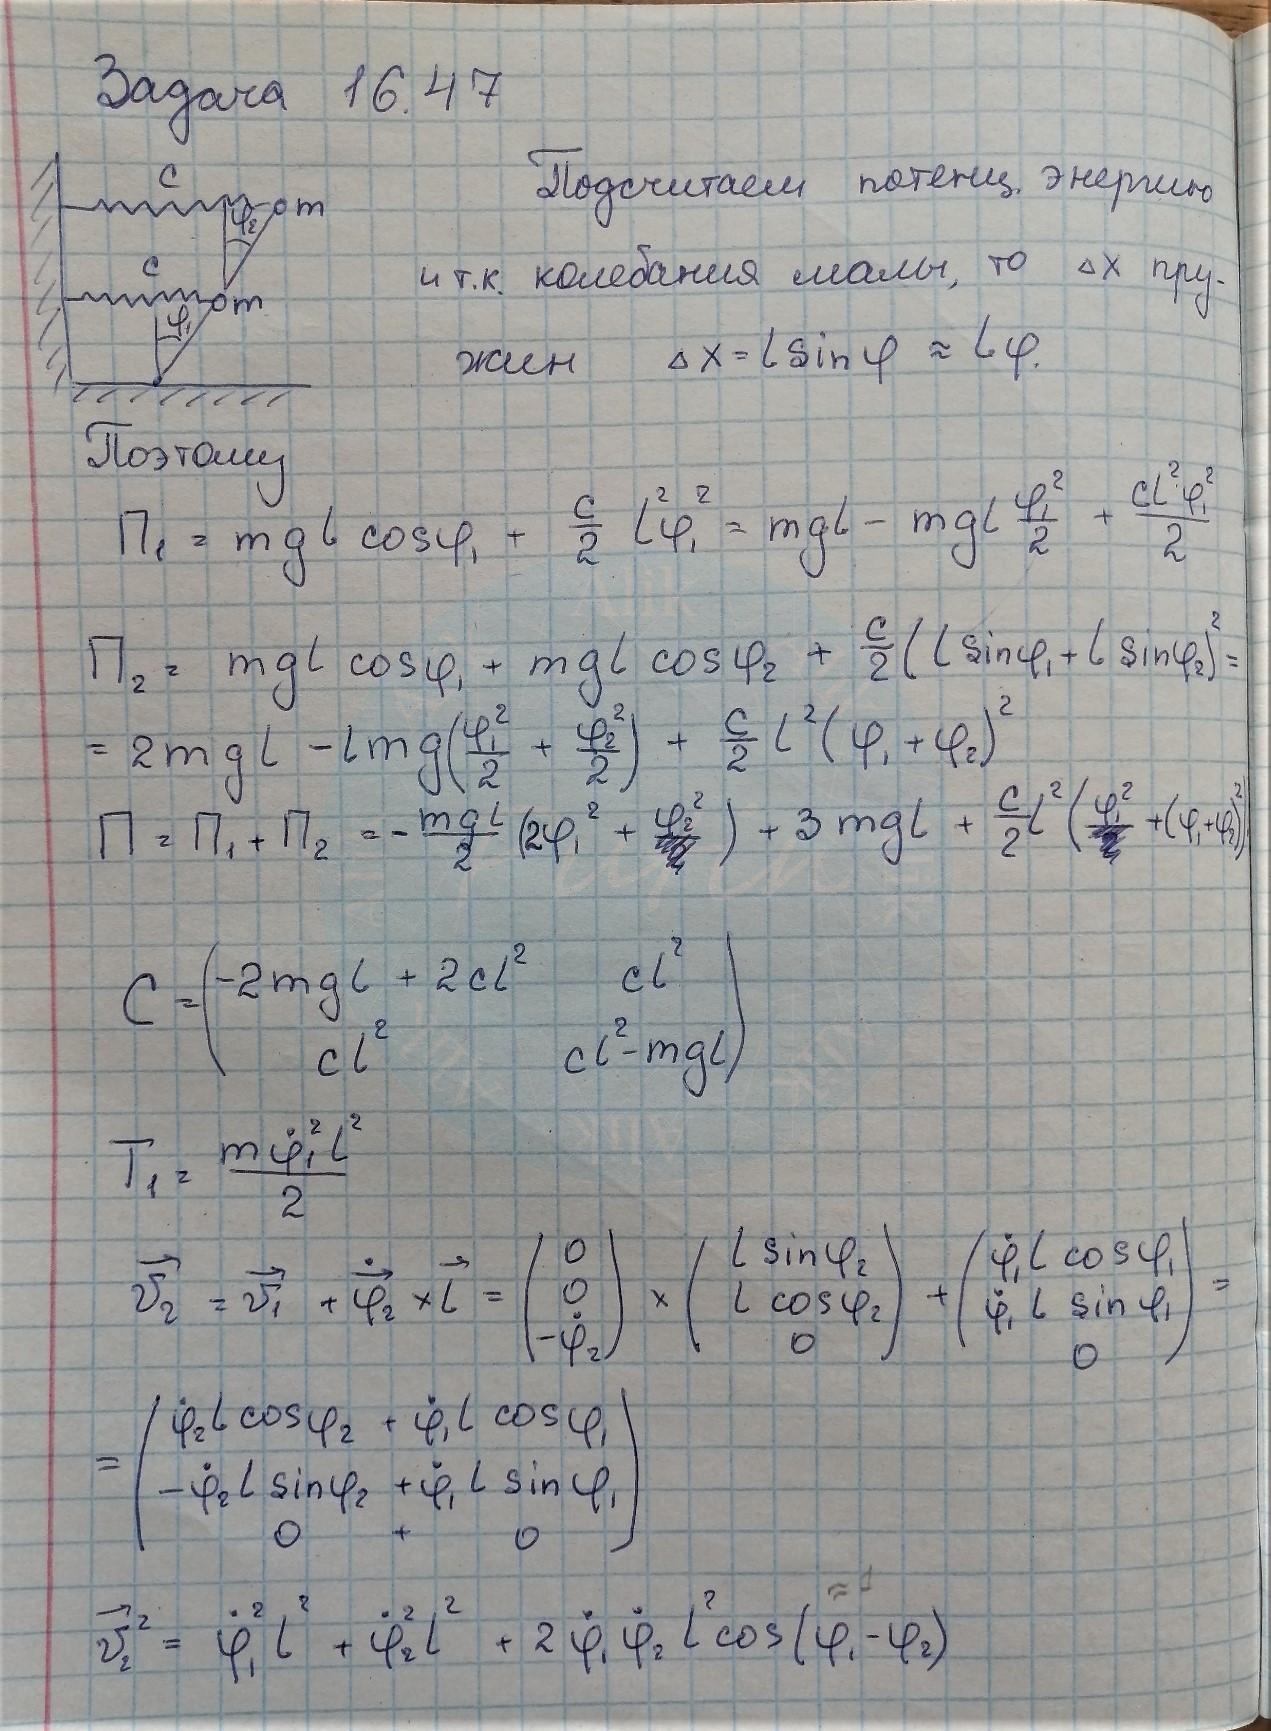 Задача 16.47
c
φ₂ m
c
m
φ₁
Подсчитаем потенц. энергию
и т.к. колебания малы, то Δx пру-
жин Δx = l sinφ ≈ lφ.
Поэтому
П₁ = mgl cosφ₁ + c/2 l²φ₁² = mgl - mgl φ₁²/2 + cl²φ₁²/2
П₂ = mgl cosφ₁ + mgl cosφ₂ + c/2 (l sinφ₁ + l sinφ₂)² =
= 2mgl - lmg(φ₁²/2 + φ₂²/2) + c/2 l²(φ₁ + φ₂)²
П = П₁ + П₂ = - mgl/2 (2φ₁² + φ₂²) + 3mgl + c/2 l²(φ₁² + (φ₁+φ₂)²)
C = (-2mgl + 2cl² cl²
cl² cl² - mgl)
T₁ = mφ̇₁²l²/2
v⃗₂ = v⃗₁ + φ̇⃗₂ × l⃗ = (0 0 -φ̇₂) × (l sinφ₂ l cosφ₂ 0) + (φ̇₁l cosφ₁ φ̇₁l sinφ₁ 0) =
= (φ̇₂l cosφ₂ + φ̇₁l cosφ₁
-φ̇₂l sinφ₂ + φ̇₁l sinφ₁
0 + 0)
≈1
v⃗₂² = φ̇₁²l² + φ̇₂²l² + 2φ̇₁φ̇₂l² cos(φ₁-φ₂)